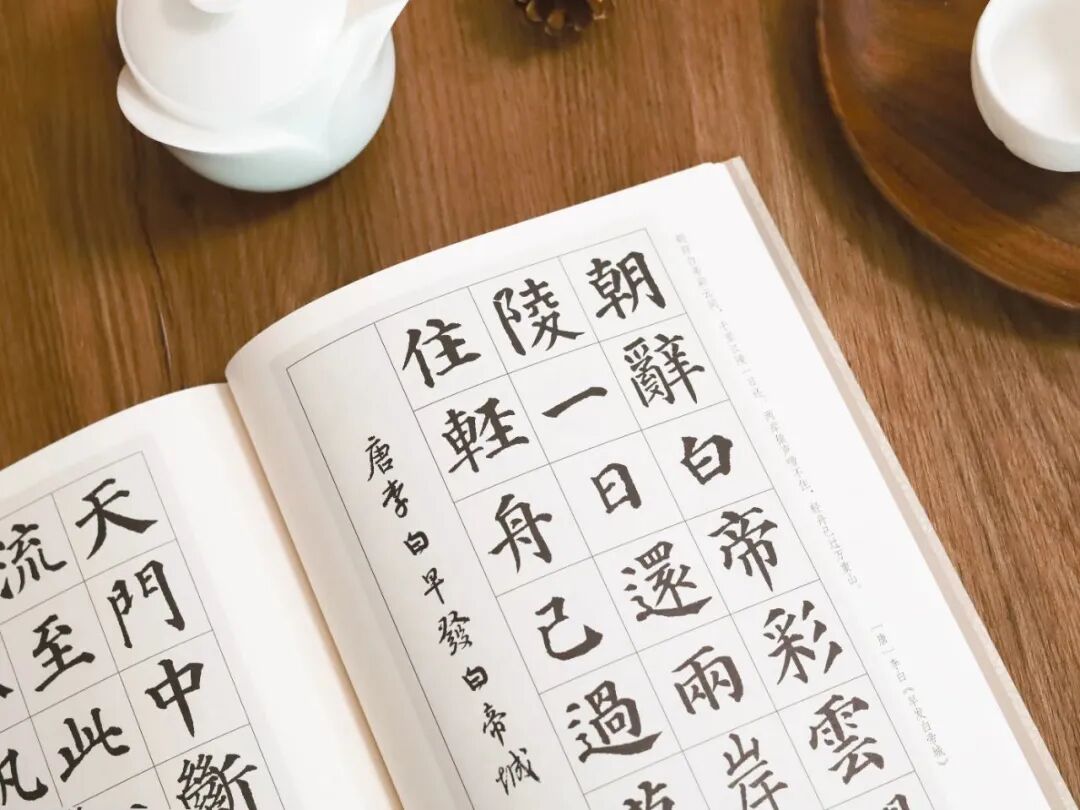 朝辞白帝彩云间，千里江陵一日还。两岸猿声啼不住，轻舟已过万重山。
［唐］李白《早发白帝城》
朝辭白帝彩雲
陵一日還兩岸
住軽舟已過
唐李白早發白帝城
天門中斷
流至此